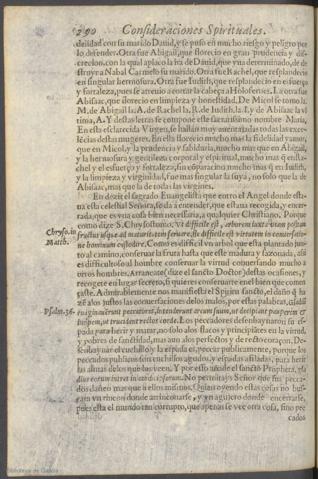 290 Consideraciones Spirituales.
delidad con su marido Dauid, y se puso en mucho riesgo y peligro por
lo defender. Otra fue Abigail, que florecio en gran prudencia y dis-
crecion, con la qual aplaco la ira de Dauid, que yua determinado, de de
struyr a Nabal Carmelo su marido. Otra fue Rachel, que resplandecia
en singular hermosura. Otra fue Iudith, que resplandecio en esfuerço
y fortaleza, pues se atreuio a cortar la cabeça a Holofernes. La otra fue
Abisac, que florecio en limpieza y honestidad. De Micol se toma la
M, de Abigail la A, de Rachel la R, de Iudith, la I, y de Abisac la vl
tima, A. Y destas letras se compone este sanctissimo nombre Maria,
En esta esclarecida Virgen, se hallan muy auentajadas todas las exce-
lécias destas mugeres. En ella florecio mucho mas la fidelidad
que en Micol, y la prudencia y sabiduria, mucho mas que en Abigail,
y la hermosura y gentileza corporal y spiritual, mucho mas q̃ en Ra-
chel y el esfuerço y fortaleza, sin cõparacion mucho mas q̃ en Iudith,
y la limpieza y virginidad, fue mas singular la suya, no solo que la de
Abisac, mas que la de todas las virgines.
En dezir el sagrado Euangelista que entro el Angel donde esta-
ua esta celestial Señora, se da à entender, que estaua recogida, y encer-
rada, que es vna cosa bien necessaria, a qualquier Christiano. Porque
como dize S. Chrysostomo, vt difficile est, arborem iuxta viam positam
Chryso. in
Matth.
fructus vsque ad maturitatem seruare, sic difficile est virum in conuersatio-
ne hominum custodire. Como es difficil vn arbol que esta plantado jun-
to al camino, conseruar la fruta hasta que este madura y sazonada, assi
es difficultoso al hombre conseruar la virtud conuersando mucho a
otros hombres. Arrancate (dize el sancto Doctor) destas ocasiones, y
recogete en lugar secreto, si quieres conseruar el bien que comen
çaste. Admirablemente nos manifiesta el Spiritu sancto, el daño q̃ ha
zẽ a los justos las conuersaciones delos malos, por estas palabras, Gladiũ
Psalm. 36.
euaginauerunt peccatores, intenderunt arcum suum, vt decipiant pauperem &
inopem, vt trucident rectos corde. Los peccadores desenbaynaron su es-
pada para herir y matar, no solo a los flacos y principiãtes en la virtud,
y pobres de sanctidad, mas aun a los perfectos y de recto coraçon.
peccadores publicos son cuchillos agudos, y espadas afiladas, para herir
las almas delos que bas veen. Y por esso añade el sancto Propheta,
No permitays Señor
çan vn rincon donde arrinconarse, y vn agujero donde encerrarse,
pues esta el mundo tan corrupto, que apenas se vee otra cosa, sino pec
cados
Biblioteca de Galicia